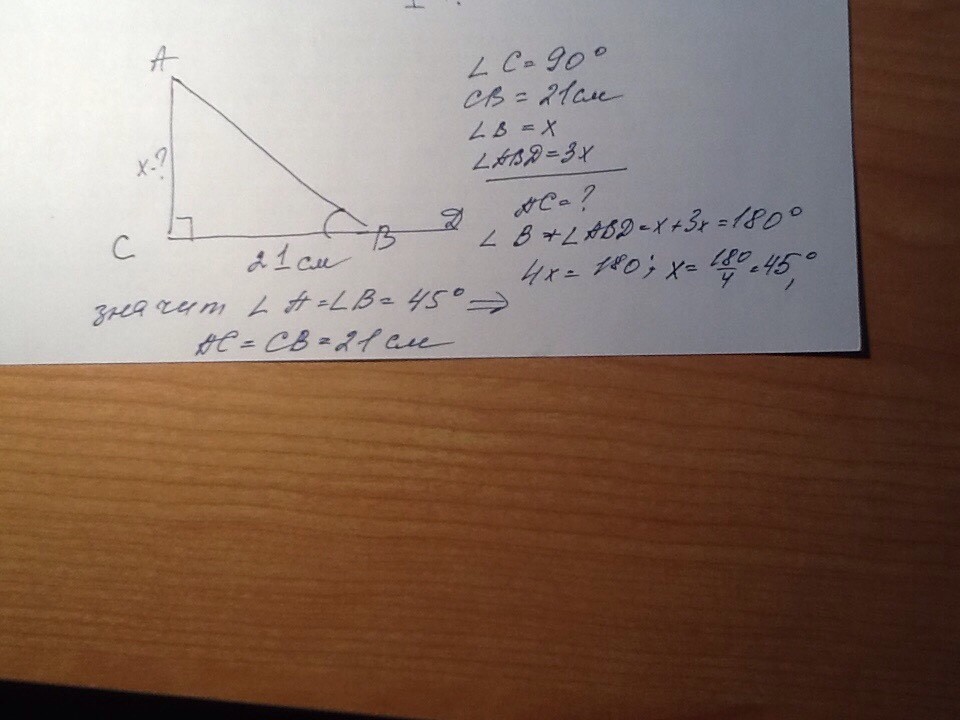 A
x-?
C
B
D
21 см
∠ C = 90°
CB = 21 см
∠ B = x
∠ABD = 3x
AC = ?
∠ B + ∠ABD = x + 3x = 180°
4x = 180; x = 180/4 = 45,°
значит ∠ A = ∠B = 45° ⇒
AC = CB = 21 см